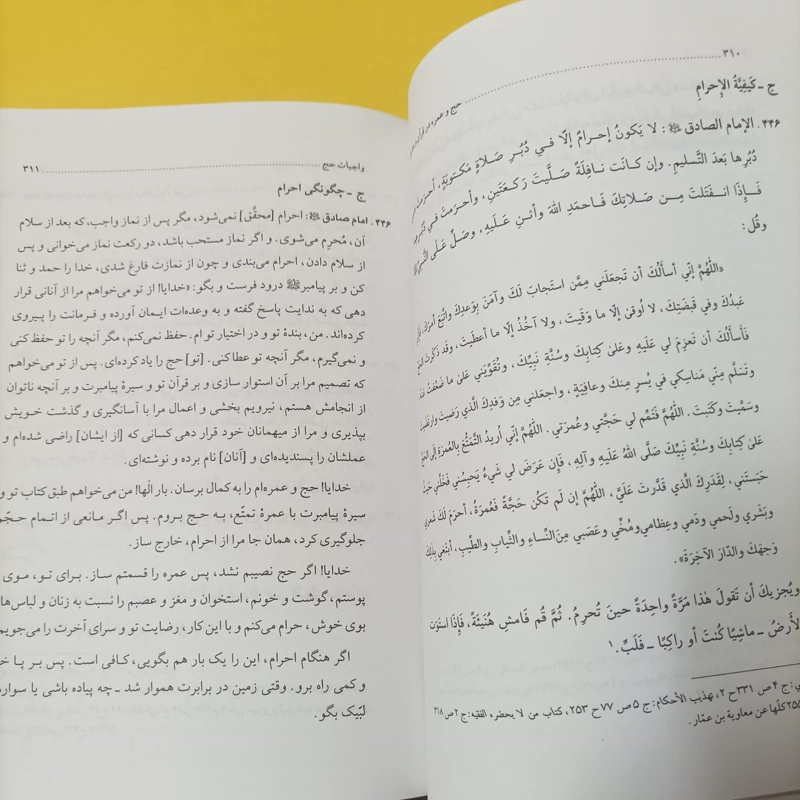 ۳۱۰
حج و عمره در قرآن
ج ـ كَيفِيَّةُ الإِحرامِ
۴۴۶ . الإمام الصادق ﷺ : لا يَكونُ إحرامٌ إلّا في دُبُرِ صَلاةٍ مَكتوبَةٍ، أحرَمتَ
دُبُرِها بَعدَ التَّسليمِ. وإن كانَت نافِلَةً صَلَّيتَ رَكعَتَينِ، وأحرَمتَ في
فَإِذَا انفَتَلتَ مِن صَلاتِكَ فَاحمَدِ اللهَ وأثنِ عَلَيهِ، وصَلِّ عَلَى
وقُل:
«اللّٰهُمَّ إنّي أسأَلُكَ أن تَجعَلَني مِمَّنِ استَجابَ لَكَ وآمَنَ بِوَعدِكَ وَاتَّبَعَ أمرَكَ،
عَبدُكَ وفي قَبضَتِكَ، لا أوقىٰ إلّا ما وَقَيتَ، ولا آخُذُ إلّا ما أعطَيتَ، وقَد ذَكَرتَ
فَأَسأَلُكَ أن تَعزِمَ لي عَلَيهِ وعَلىٰ كِتابِكَ وسُنَّةِ نَبِيِّكَ، وتُقَوِّيَني عَلىٰ ما ضَعُفتُ
وتَسَلَّمَ مِنّي مَناسِكي في يُسرٍ مِنكَ وعافِيَةٍ، وَاجعَلني مِن وَفدِكَ الَّذي رَضيتَ وَارتَضَيتَ
وسَمَّيتَ وكَتَبتَ. اللّٰهُمَّ فَتَمِّم لي حَجَّتي وعُمرَتي. اللّٰهُمَّ إنّي أُريدُ التَّمَتُّعَ بِالعُمرَةِ إلَى
عَلىٰ كِتابِكَ وسُنَّةِ نَبِيِّكَ صَلَّى اللهُ عَلَيهِ وآلِهِ، فَإِن عَرَضَ لي شَيءٌ يَحبِسُني فَحُلَّني
حَبَستَني، لِقَدَرِكَ الَّذي قَدَّرتَ عَلَيَّ، اللّٰهُمَّ إن لَم تَكُن حَجَّةً فَعُمرَةً، أحرَمَ لَكَ
وبَشَري ولَحمي ودَمي وعِظامي ومُخّي وعَصَبي مِنَ النِّساءِ وَالثِّيابِ وَالطّيبِ، أبتَغي بِذٰلِكَ
وَجهَكَ وَالدّارَ الآخِرَةَ».
ويُجزيكَ أن تَقولَ هٰذا مَرَّةً واحِدَةً حينَ تُحرِمُ. ثُمَّ قُم فَامشِ هُنَيئَةً، فَإِذَا استَوَت
الأَرضُ ـ ماشِيًا كُنتَ أو راكِبًا ـ فَلَبِّ.۱
ج ۴ ص ۳۳۱ ح ۲، تهذيب الأحكام: ج ۵ ص ۷۷ ح ۲۵۳، كتاب من لا يحضره الفقيه: ج ۲ ص ۳۱۸
كلّها عن معاوية بن عمّار.
واجبات حج ۳۱۱
ج ـ چگونگی احرام
۴۴۶ . امام صادق ﷺ : احرام [محقَّق] نمی‌شود، مگر پس از نماز واجب، که بعد از سلام
آن، مُحرِم می‌شوی. و اگر نماز مستحب باشد، دو رکعت نماز می‌خوانی و پس
از سلام دادن، احرام می‌بندی و چون از نمازت فارغ شدی، خدا را حمد و ثنا
کن و بر پیامبر ﷺ درود فرست و بگو: «خدایا! از تو می‌خواهم مرا از آنانی قرار
دهی که به ندایت پاسخ گفته و به وعده‌ات ایمان آورده و فرمانت را پیروی
کرده‌اند. من، بندهٔ تو و در اختیار تو ام. حفظ نمی‌کنم، مگر آنچه را تو حفظ کنی
و نمی‌گیرم، مگر آنچه تو عطا کنی. [تو] حج را یاد کرده‌ای. پس از تو می‌خواهم
که تصمیم مرا بر آن استوار سازی و بر قرآن تو و سیرهٔ پیامبرت و بر آنچه ناتوان
از انجامش هستم، نیرویم بخشی و اعمال مرا با آسانگیری و گذشت خویش
بپذیری و مرا از میهمانان خود قرار دهی کسانی که [از ایشان] راضی شده‌ام و
عملشان را پسندیده‌ای و [آنان] نام برده و نوشته‌ای.
خدایا! حج و عمره‌ام را به کمال برسان. بار الٰها! من می‌خواهم طبق کتاب تو و
سیرهٔ پیامبرت با عمرهٔ تمتّع، به حج بروم. پس اگر مانعی از اتمام حجّم
جلوگیری کرد، همان جا مرا از احرام، خارج ساز.
خدایا! اگر حج نصیبم نشد، پس عمره را قسمتم ساز. برای تو، موی
پوستم، گوشت و خونم، استخوان و مغز و عصبم را نسبت به زنان و لباس‌ها
بوی خوش، حرام می‌کنم و با این کار، رضایت تو و سرای آخرت را می‌جویم
اگر هنگام احرام، این را یک بار هم بگویی، کافی است. پس بر پا
و کمی راه برو. وقتی زمین در برابرت هموار شد ـ چه پیاده باشی یا سواره
لبّیک بگو.